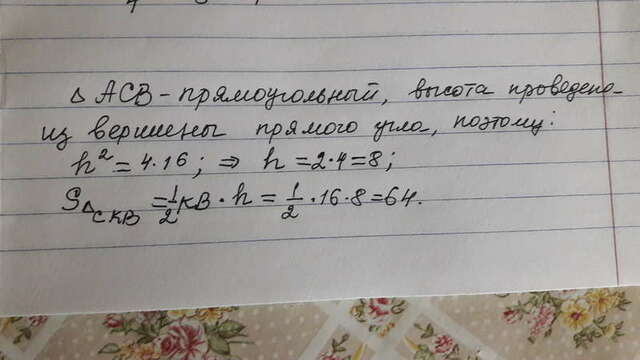 Δ ACB - прямоугольный, высота проведена
из вершины прямого угла, поэтому:
h² = 4·16; ⇒ h = 2·4 = 8;
S△CKB = 1/2 KB · h = 1/2 · 16 · 8 = 64.